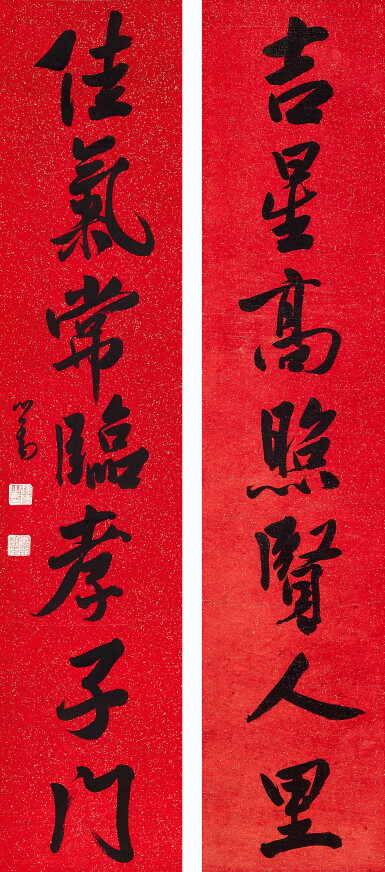 吉星高照賢人里
佳氣常臨孝子门
心畬